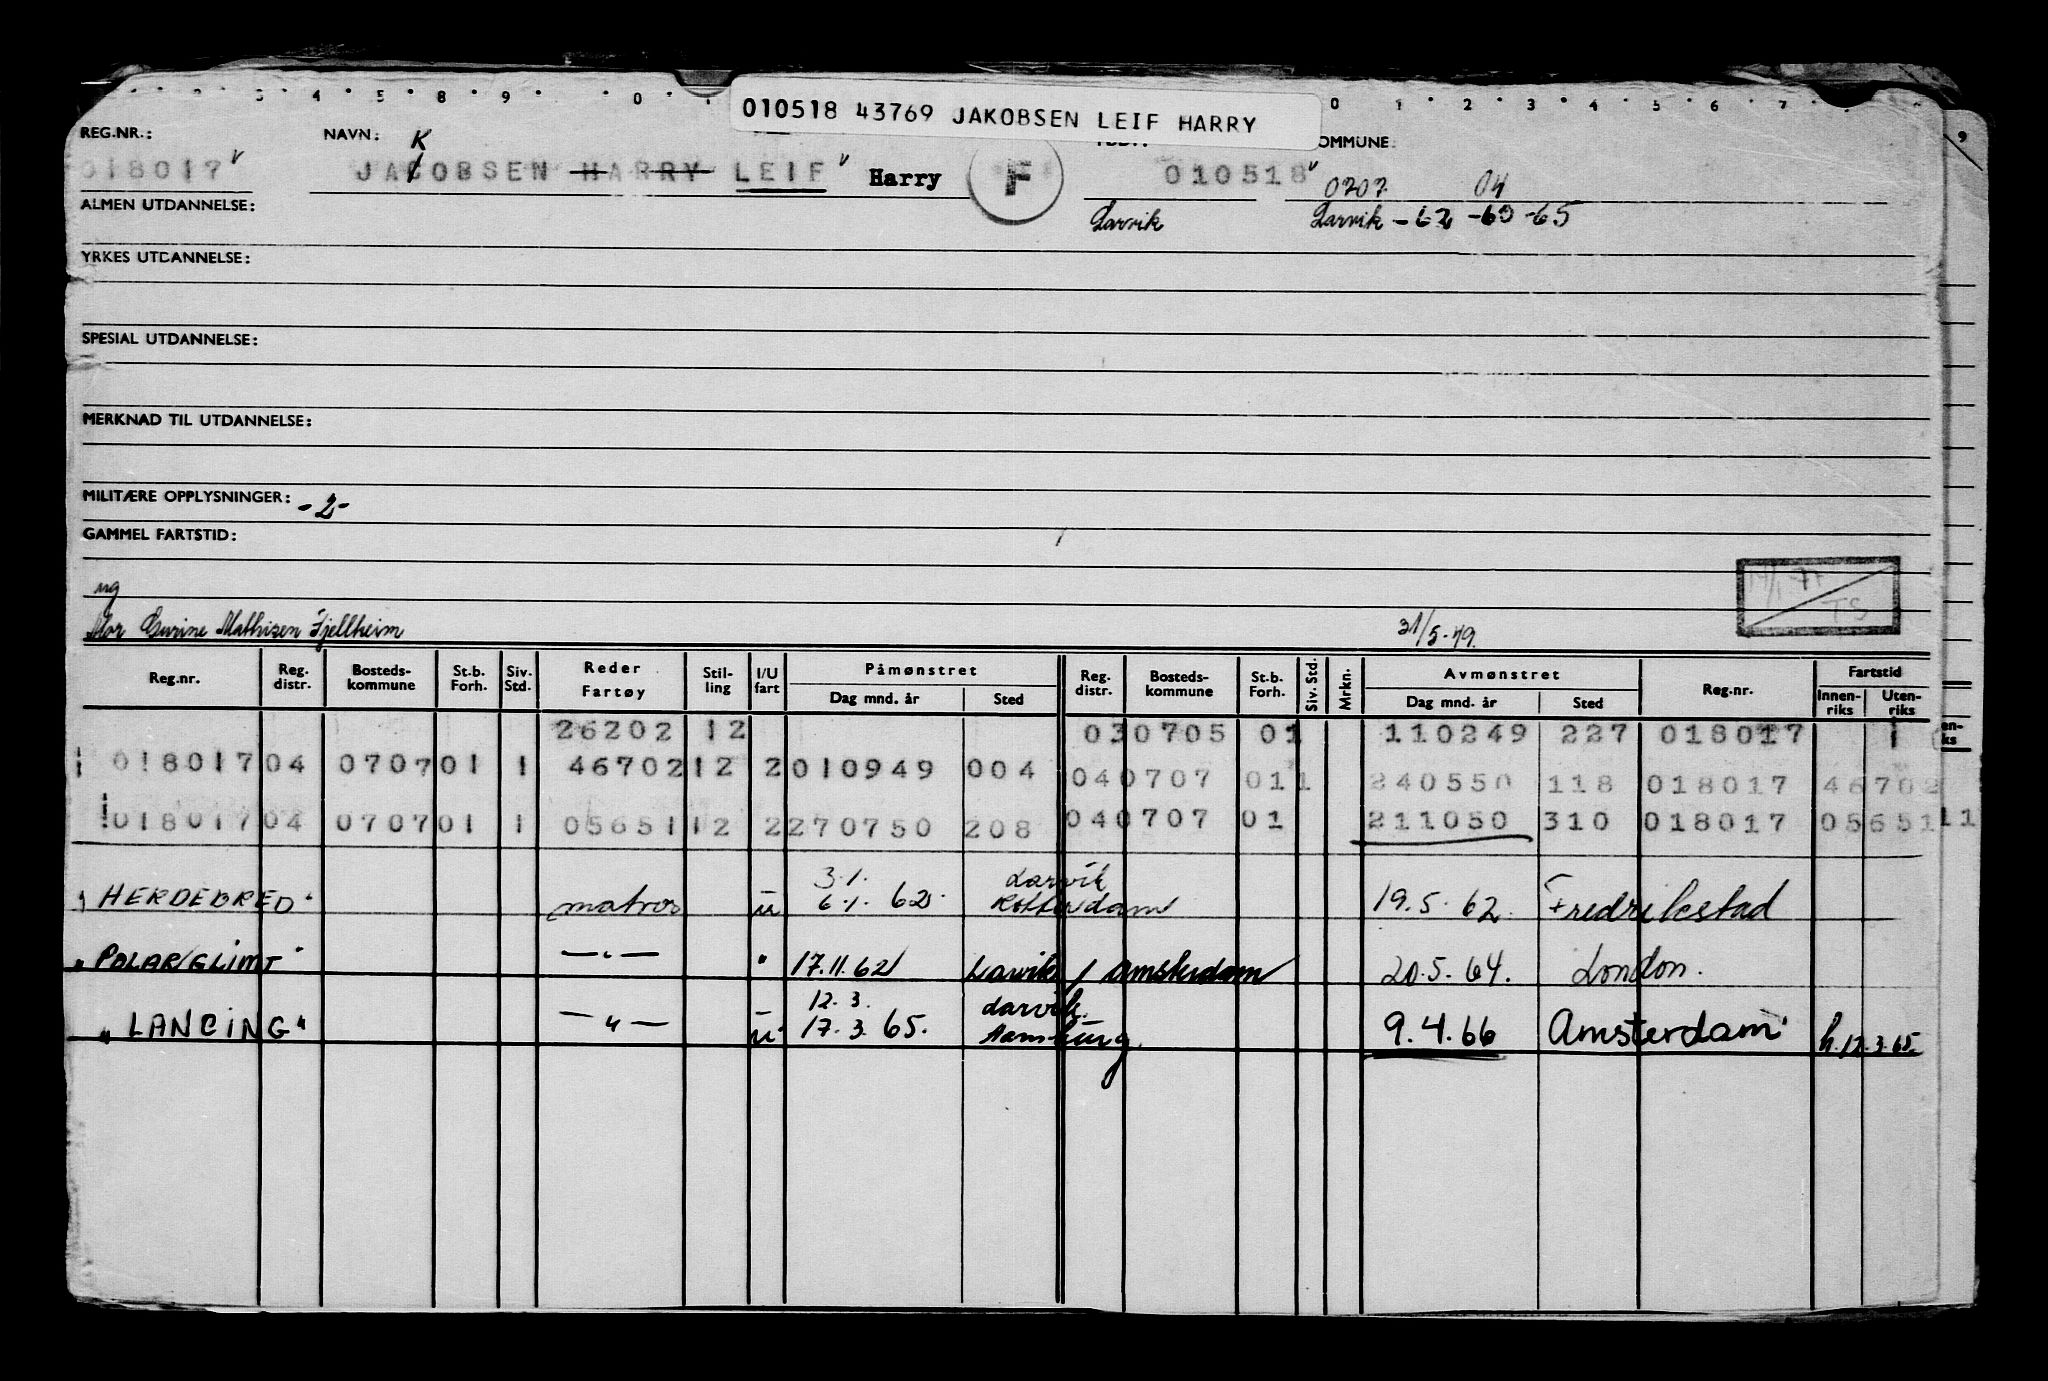 010518 43769 JAKOBSEN LEIF HARRY
REG.NR.: NAVN: K OMMUNE
018017 JACOBSEN HARRY LEIF Harry F 010518 0707 04
ALMEN UTDANNELSE: Larvik Larvik - 62 - 63 - 65
YRKES UTDANNELSE:
SPESIAL UTDANNELSE:
MERKNAD TIL UTDANNELSE:
MILITÆRE OPPLYSNINGER: -2-
GAMMEL FARTSTID:
ug
Mor Gurine Mathisen Fjellheim 31/5-49.
TS
Reg.nr. Reg. distr. Bosteds-kommune St.b. Forh. Siv. Std. Reder Fartøy Stil-ling I/U fart Påmønstret Dag mnd. år Sted Reg. distr. Bosteds-kommune St.b. Forh. Siv. Std. Mrkn. Avmønstret Dag mnd. år Sted Reg.nr. Fartstid Innen-riks Uten-riks
26202 12 030705 01 110249 227 018017 1
018017 04 0707 01 1 46702 12 2 010949 004 040707 01 1 240550 118 018017 46702
018017 04 0707 01 1 05651 12 2 270750 208 040707 01 211050 310 018017 05651 11
"HERDEBRED" matros u 3.1. 6.1. 62. Larvik Rotterdam 19.5.62. Fredrikstad
"POLARGLIMT" —"— " 17.11.62 Larvik / Amsterdam 20.5.64. London.
"LANCING" —"— u 12.3. 17.3.65. Larvik. Hamburg 9.4.66 Amsterdam h.12.3.65.